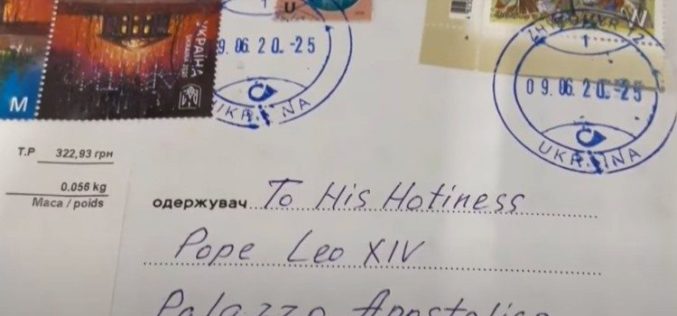 УКРАЇНА
M
U
1
09.06.20.-25
UKRAINE
W
1
09.06.20.-25
UKRAINA
Т.Р 322,93 грн
0.056 kg
Maca / poids
одержувач To His Hotiness
Pope Leo XIV
Palazzo Apostolico